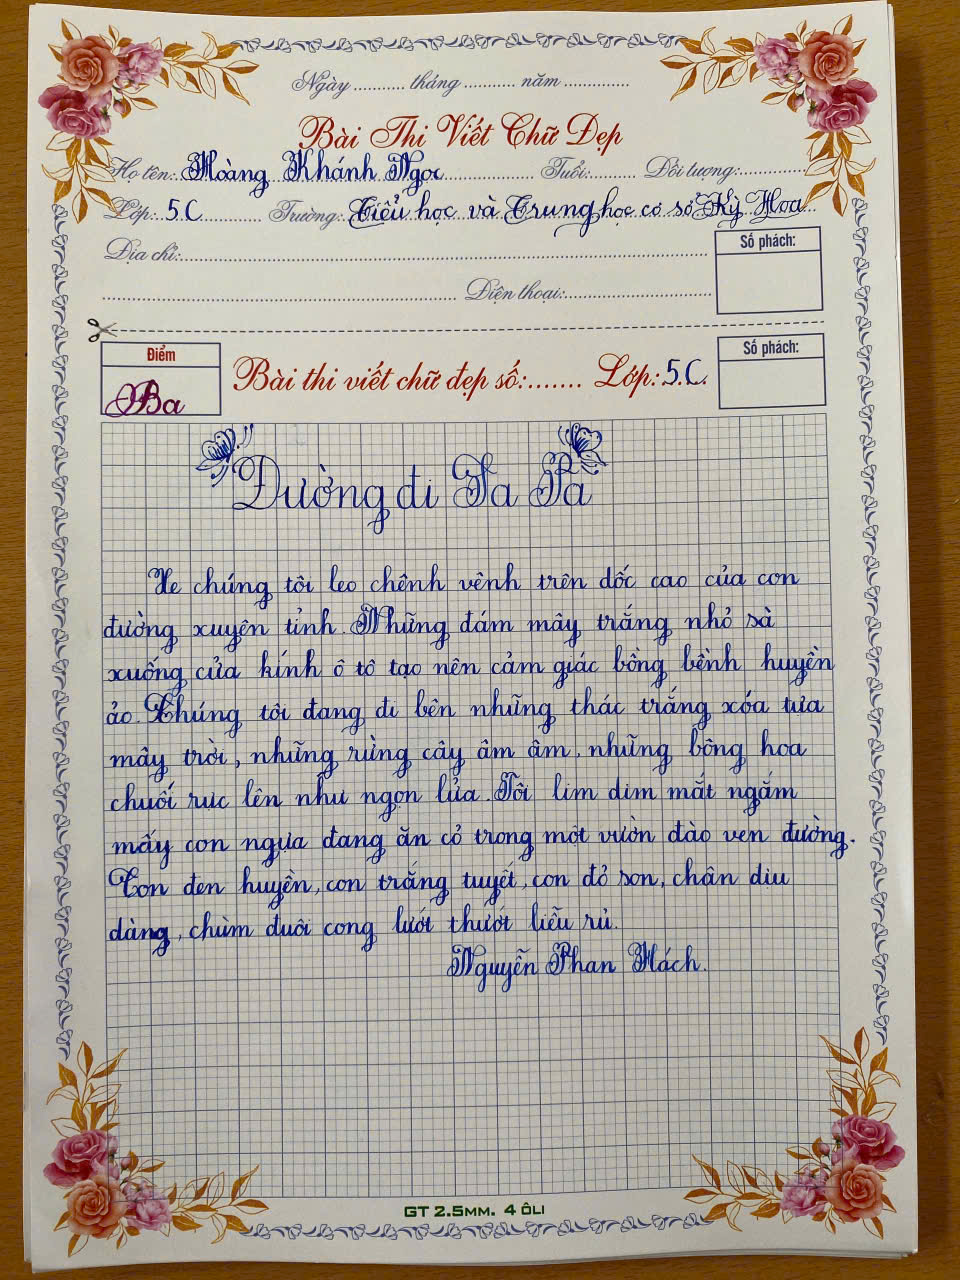 Ngày ........... tháng ........... năm ..............
Bài Thi Viết Chữ Đẹp
Họ tên: Hoàng Khánh Ngọc Tuổi:......... Đối tượng:.............
Lớp: 5C Trường: Tiểu học và Trung học cơ sở Kỳ Hoa
Địa chỉ:
Số phách:
Điện thoại:
Điểm
Ba
Bài thi viết chữ đẹp số:....... Lớp: 5C
Số phách:
Đường đi Sa Pa
Xe chúng tôi leo chênh vênh trên dốc cao của con
đường xuyên tỉnh. Những đám mây trắng nhỏ sà
xuống cửa kính ô tô tạo nên cảm giác bồng bềnh huyền
ảo. Chúng tôi đang đi bên những thác trắng xóa tựa
mây trời, những rừng cây âm âm, những bông hoa
chuối rực lên như ngọn lửa. Tôi lim dim mắt ngắm
mấy con ngựa đang ăn cỏ trong một vườn đào ven đường.
Con đen huyền, con trắng tuyết, con đỏ son, chân dịu
dàng, chùm đuôi cong lướt thướt liễu rủ.
Nguyễn Phan Hách.
GT 2.5MM. 4 ÔLI